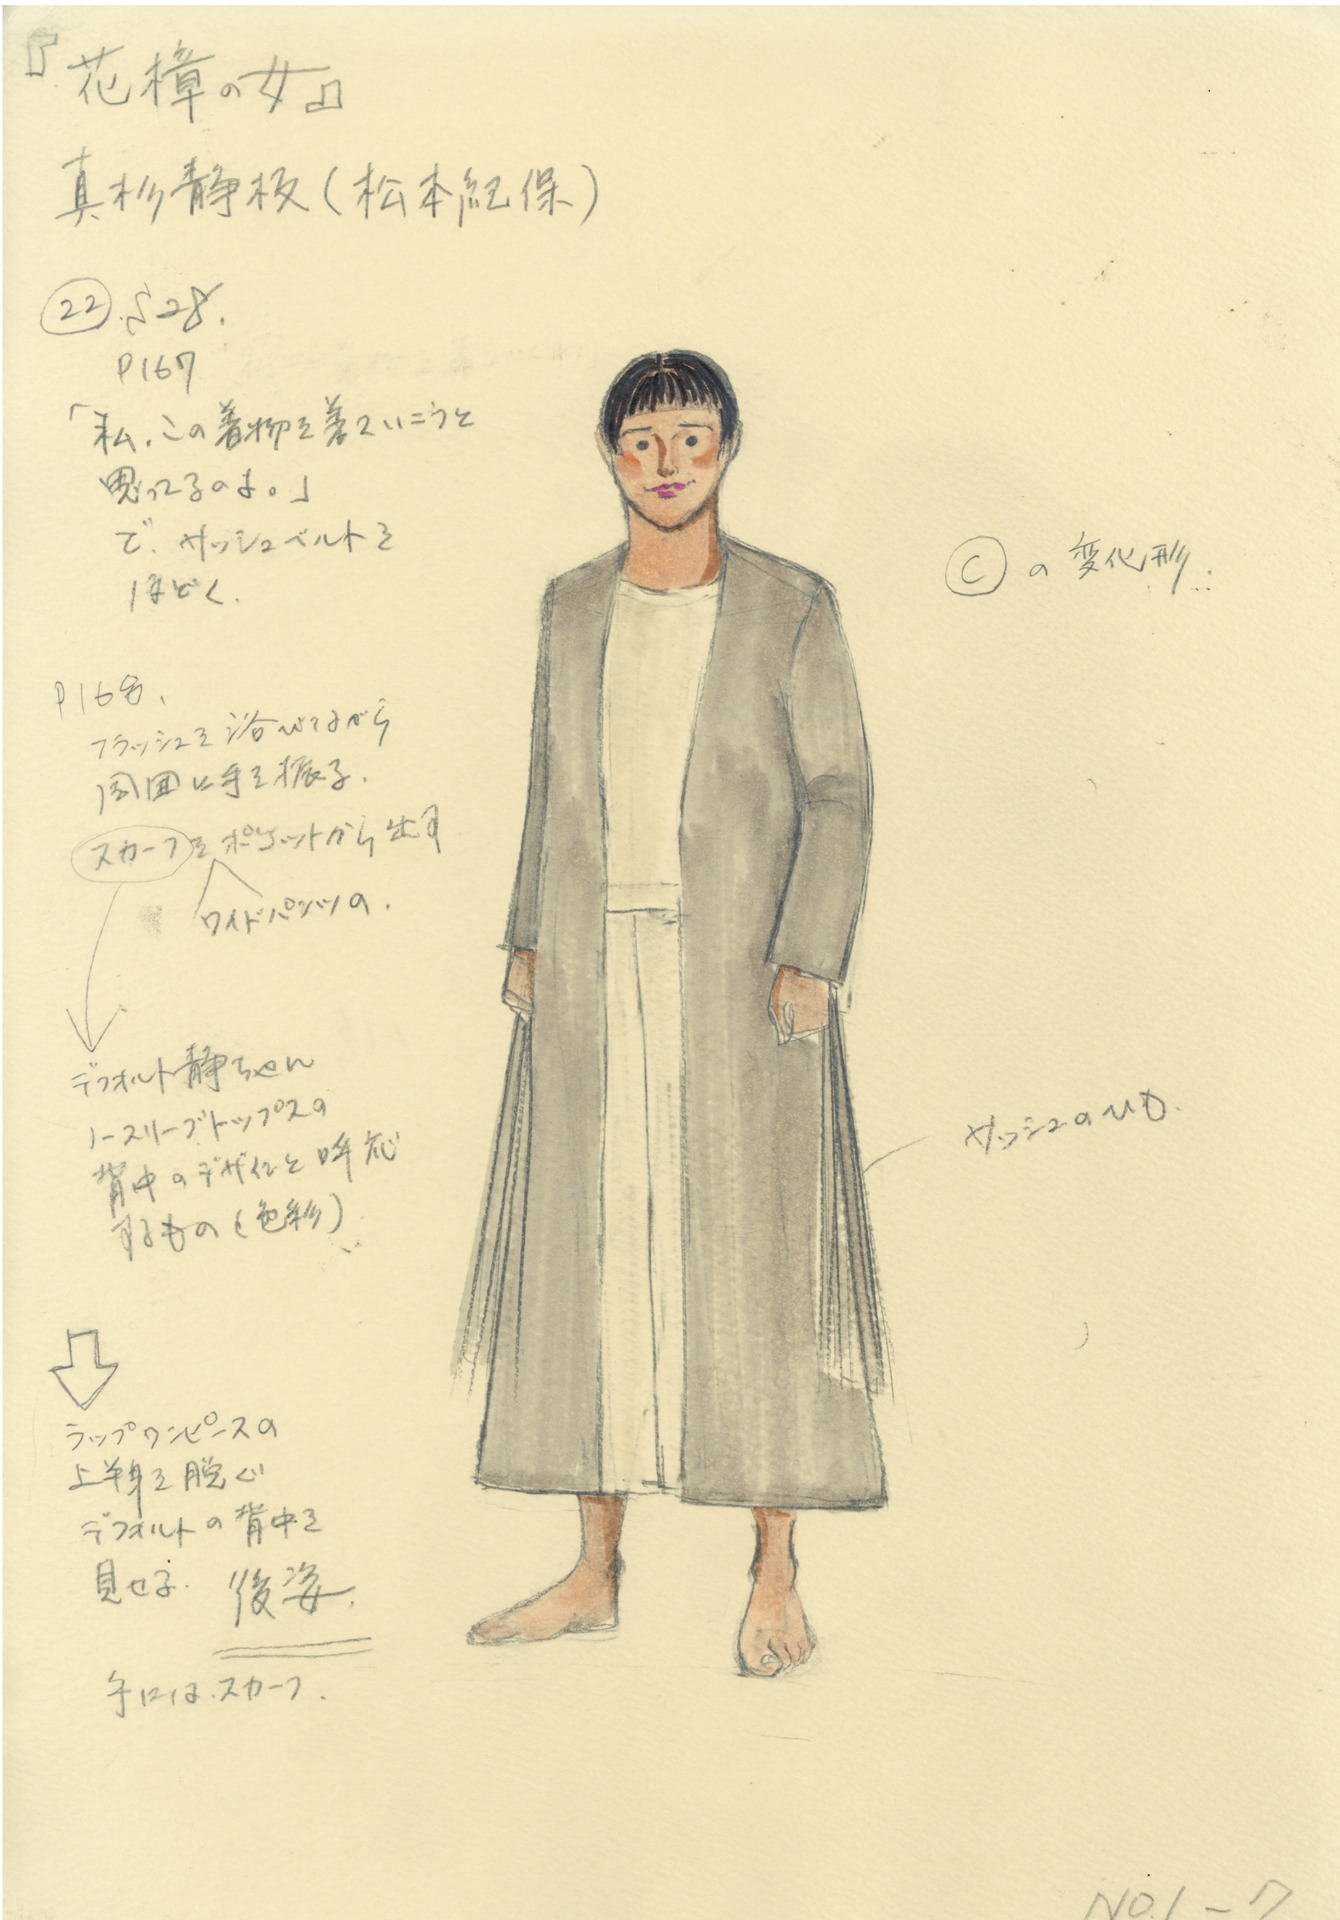 『花樟の女』
真杉静枝(松本紀保)
㉒ S28.
P167
「私、この着物を着ていこうと
思ってるのよ。」
で、サッシュベルトを
ほどく.
P168.
フラッシュを浴びながら
周囲に手を振る.
スカーフをポケットから出す
ワイドパンツの.
デフォルト静ちゃん
ノースリーブトップスの
背中のデザインと呼応
するもの(色彩)
ラップワンピースの
上半身を脱ぐ
デフォルトの背中を
見せる. 後姿.
手には、スカーフ.
Ⓒの変化形.
サッシュのひも.
NO.1-7